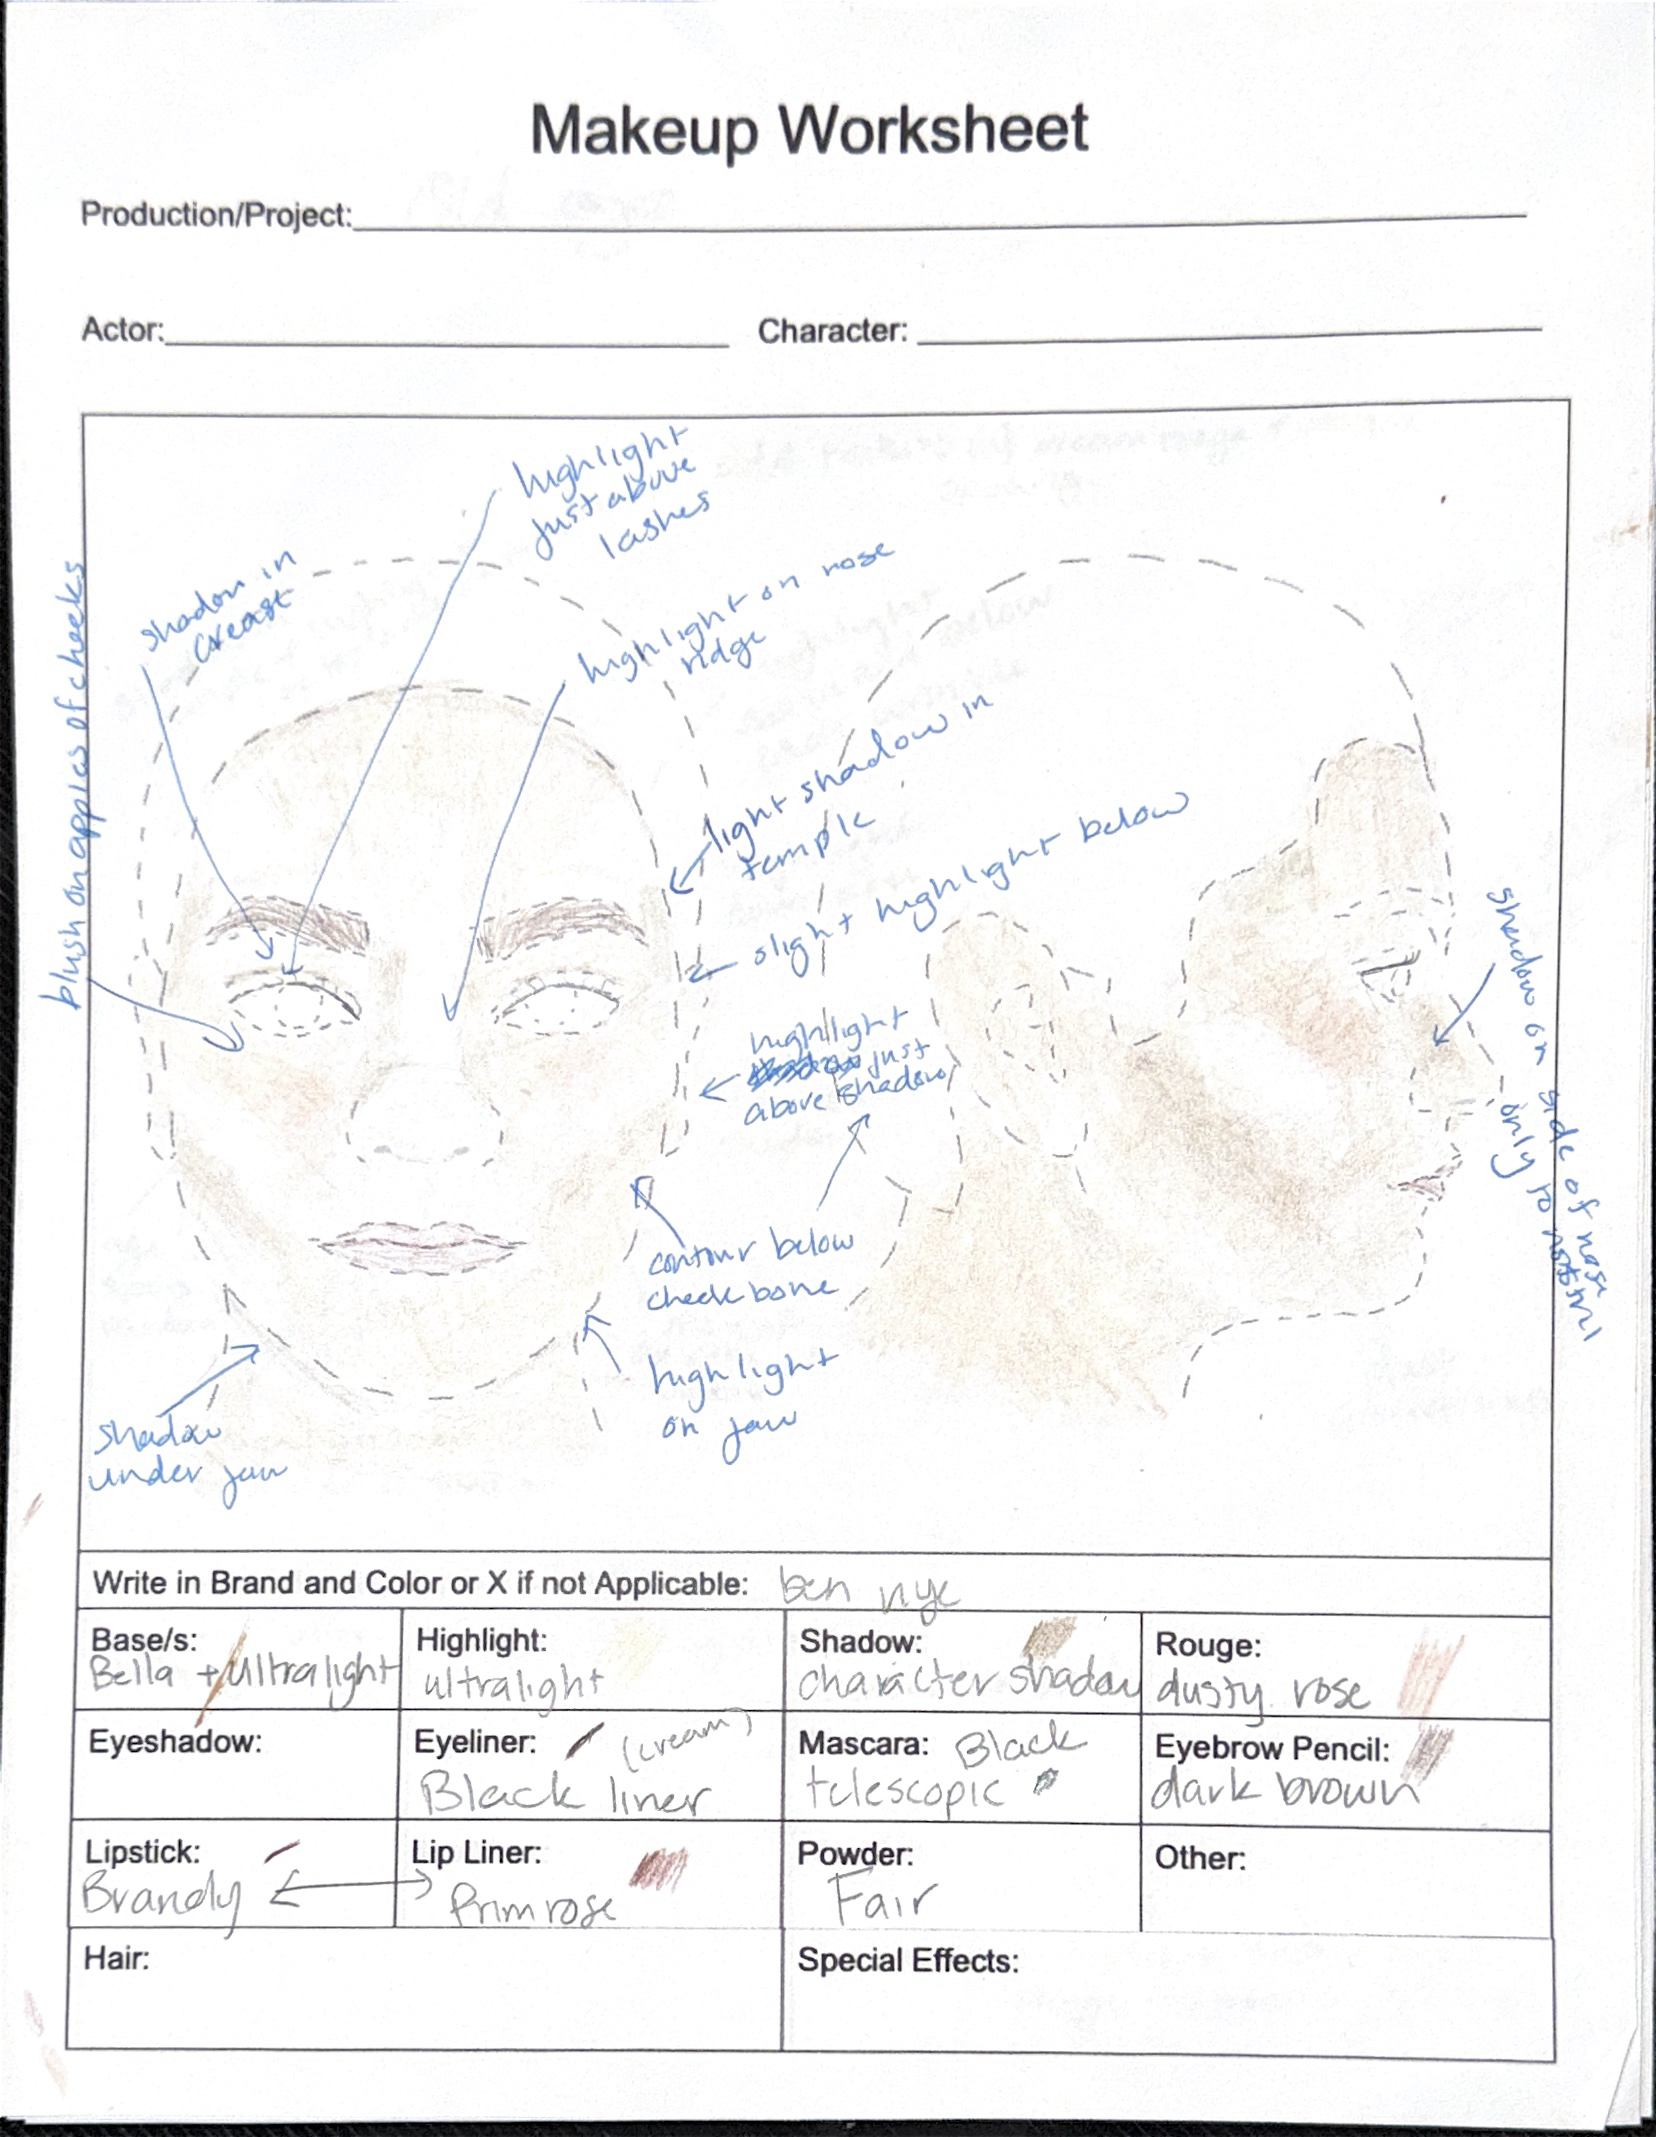 Makeup Worksheet
Production/Project:
Actor:
Character:
highlight
just above
lashes
shadow in
creast
highlight on nose
ridge
blush on apples of cheeks
light shadow in
temple
slight highlight below
shadow on side of nose
only to nostril
highlight
just
above shadow
contour below
cheek bone
highlight
on jaw
shadow
under jaw
Write in Brand and Color or X if not Applicable: ben nye
Base/s:
Bella + Ultralight
Highlight:
ultralight
Shadow:
character shadow
Rouge:
dusty rose
Eyeshadow:
Eyeliner: (cream)
Black liner
Mascara: Black
telescopic
Eyebrow Pencil:
dark brown
Lipstick:
Brandy
Lip Liner:
Primrose
Powder:
Fair
Other:
Hair:
Special Effects: